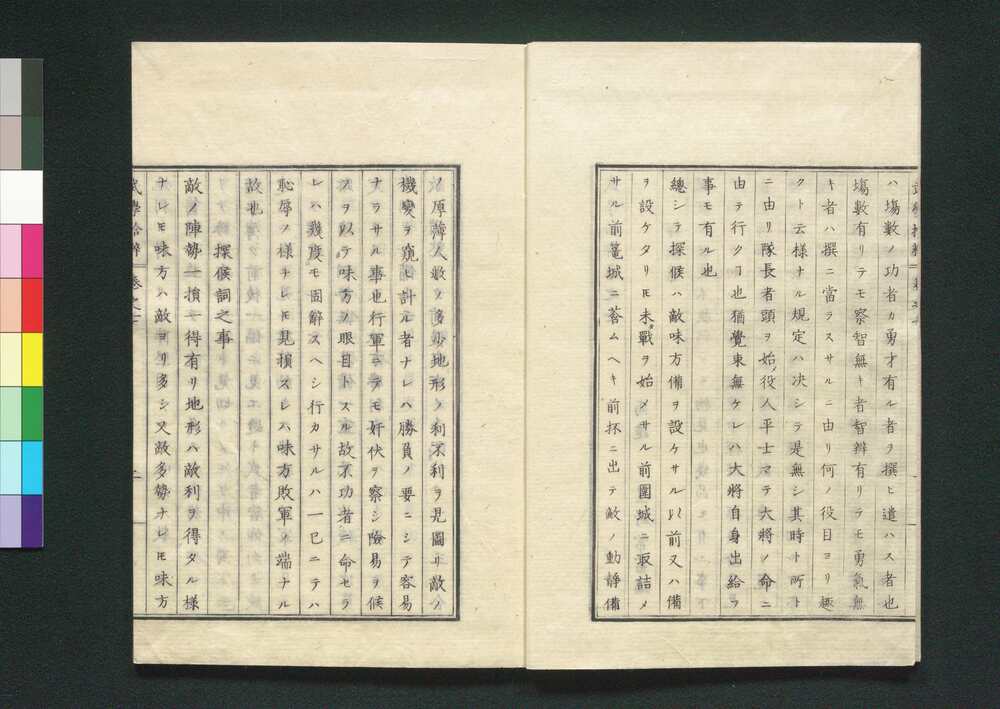 ハ塲數ノ功者カ勇才有ル者ヲ撰ヒ遣ハス者也
塲數有リテモ察智無キ者智辨有リテモ勇氣無
キ者ハ撰ニ當ラスサルニ由リ何ノ役目ヨリ趣
クト云様ナル規定ハ决シテ是無シ其時ト所ト
ニ由リ隊長者頭ヲ始役人平士マテ大將ノ命ニ
由テ行クヿ也猶覺束無ケレハ大將自身出給フ
事モ有ル也
總シテ探候ハ敵味方備ヲ設ケサル以前又ハ備
ヲ設ケタリ𪜈未戰ヲ始メサル前圍城ニ取詰メ
サル前篭城ニ荅ムヘキ前抔ニ出テ敵ノ動靜備
ノ厚薄人數ノ多少地形ノ利不利ヲ見圖リ敵ノ
機變ヲ窺ヒ計ル者ナレハ勝負ノ要ニシテ容易
ナラサル事也行軍ニテモ奸伏ヲ察シ險易ヲ候
フヲ以テ味方ノ眼目トスル故不功者ニ命セラ
レハ幾度モ固辭スヘシ行カサルハ一己ニテハ
恥辱ノ様ナレ𪜈見損スレハ味方敗軍ノ端ナル
故也
探候詞之事
敵ノ陣勢一損一得有リ地形ハ敵利ヲ得タル様
ナレ𪜈味方ハ敵ヨリ多シ又敵多勢ナレ𪜈味方